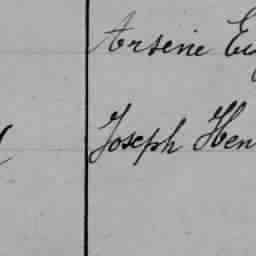 Arsene Eug
Joseph Hen